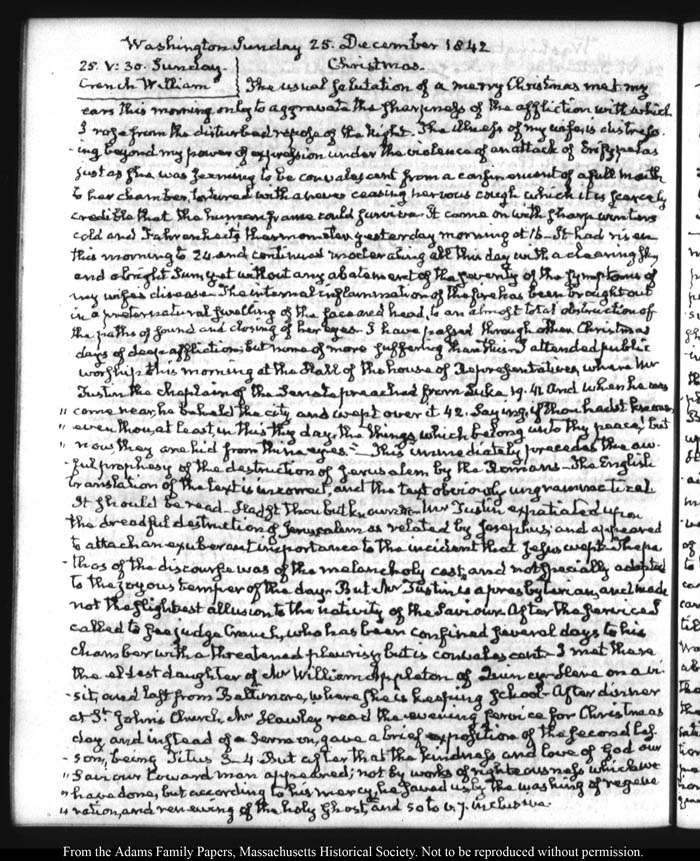 Washington Sunday 25. December 1842
25. V: 30. Sunday. Christmas.
Cranch William The usual salutation of a merry Christmas met my
ears this morning only to aggravate the sharpness of the affliction with which
I rose from the disturbed repose of the Night. The illness of my wife is distress-
-ing beyond my power of expression under the violence of an attack of Erysipelas
just as she was seeming to be convalescent from a confinement of a full month
to her chamber, tortured with a never ceasing nervous cough which it is scarcely
credible that the human frame could survive. It came on with sharp winters
cold and Fahrenheits thermometer yesterday morning at 16 - It had risen
this morning to 24 and continued moderating all this day with a clearing sky
and a bright Sun, yet without any abatement of the severity of the symptoms of
my wifes disease. The internal inflammation of the fire has been brought out
in a preternatural swelling of the face and head, to an almost total obstruction of
the paths of sound and closing of her eyes. I have passed through other Christmas
days of deep affliction; but none of more suffering than this. I attended public
worship this morning at the Hall of the house of Representatives, where Mr
Tustin the chaplain of the Senate preached from Luke 19. 41 And when he was
" come near, he beheld the city, and wept over it 42. Saying, if thou hadst known
" even thou, at least in this thy day, the things which belong unto thy peace, but
" now they are hid from thine eyes." This immediately precedes the aw-
-ful prophesy of the destruction of Jerusalem by the Romans - The English
translation of the text is incorrect, and the text obviously ungrammatical
It should be read - Hadst thou but known - Mr Tustin expatiated upon
the dreadful destruction of Jerusalem as related by Josephus; and appeared
to attach an exuberant importance to the incident that Jesus wept. The pa
-thos of the discourse was of the melancholy cast, and not specially adapted
to the joyous temper of the day - But Mr Tustin is a presbyterian, and made
not the slightest allusion to the nativity of the Saviour. After the services I
called to see judge Cranch, who has been confined several days to his
chamber with a threatened pleurisy but is convalescent - I met there
the eldest daughter of Mr William Appleton of Quincy - Here on a vi-
-sit, and last from Baltimore, where she is keeping School - After dinner
at St. John's Church Mr Hawley read the evening service for Christmas
day and instead of a Sermon, gave a brief exposition of the second les-
-son, being Titus 3. 4 But after that the kindness and love of God our
" Saviour toward man appeared; not by works of righteousness which we
" have done, but according to his mercy, he saved us, by the washing of regene
" ration, and renewing of the holy Ghost, and so to v. 7. inclusive.
From the Adams Family Papers, Massachusetts Historical Society. Not to be reproduced without permission.